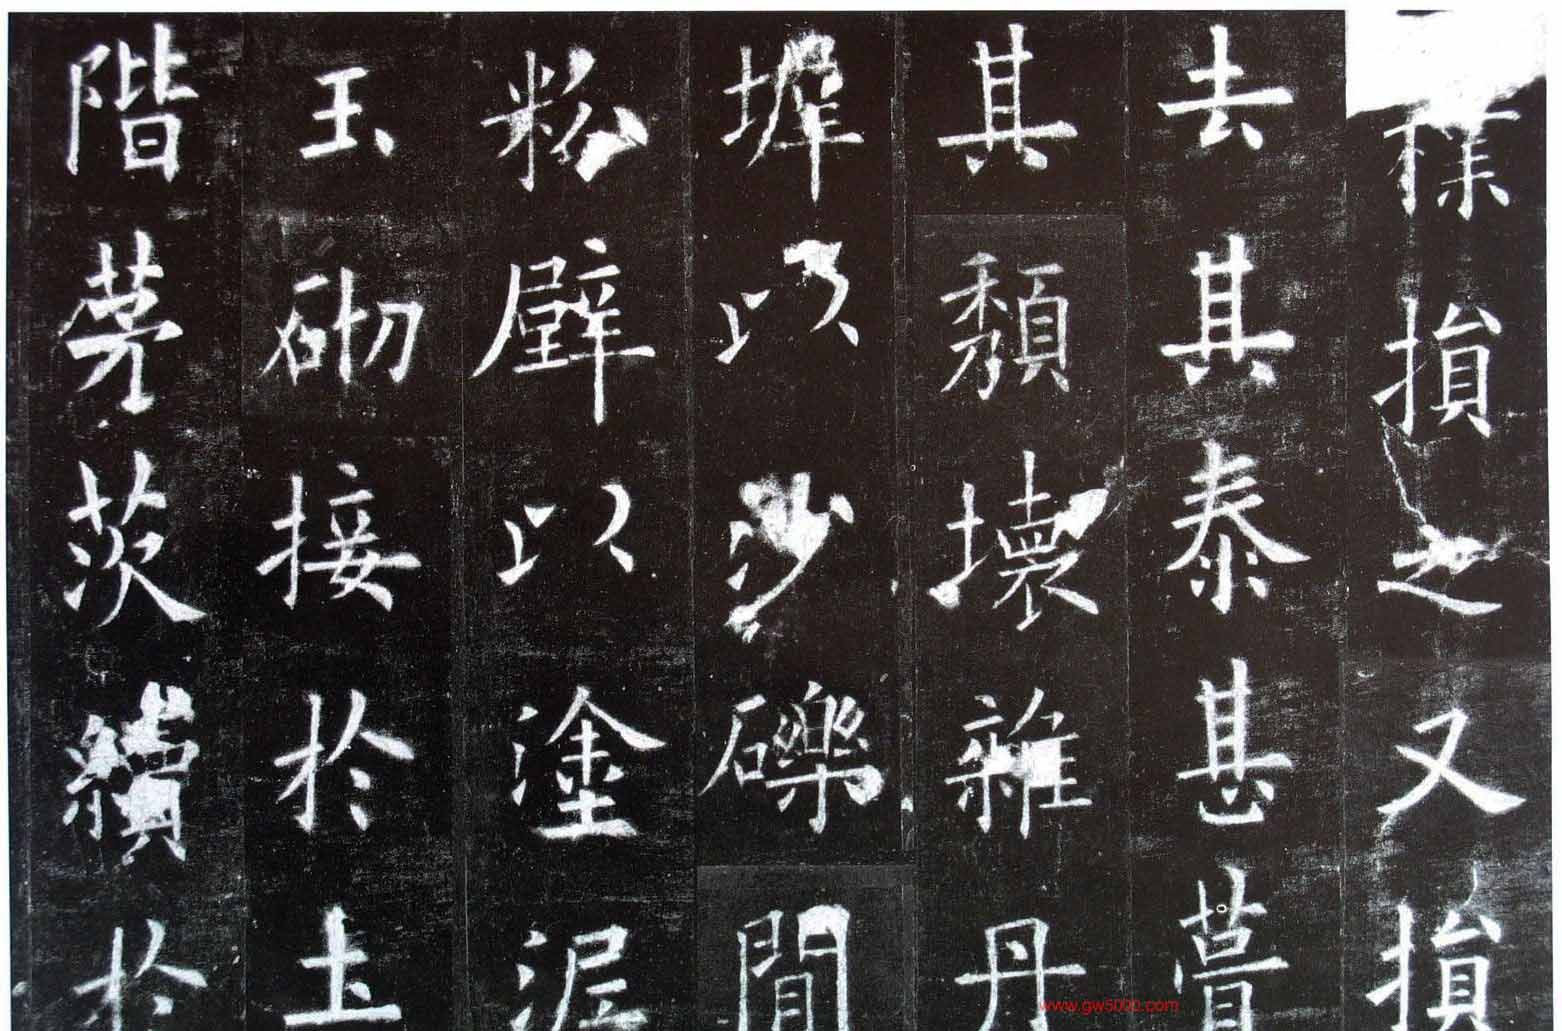 樸損之又損
去其泰甚葺
其頽壞雜丹
墀以沙礫間
粉壁以塗泥
玉砌接於土
階茅茨續於
www.gw5000.com